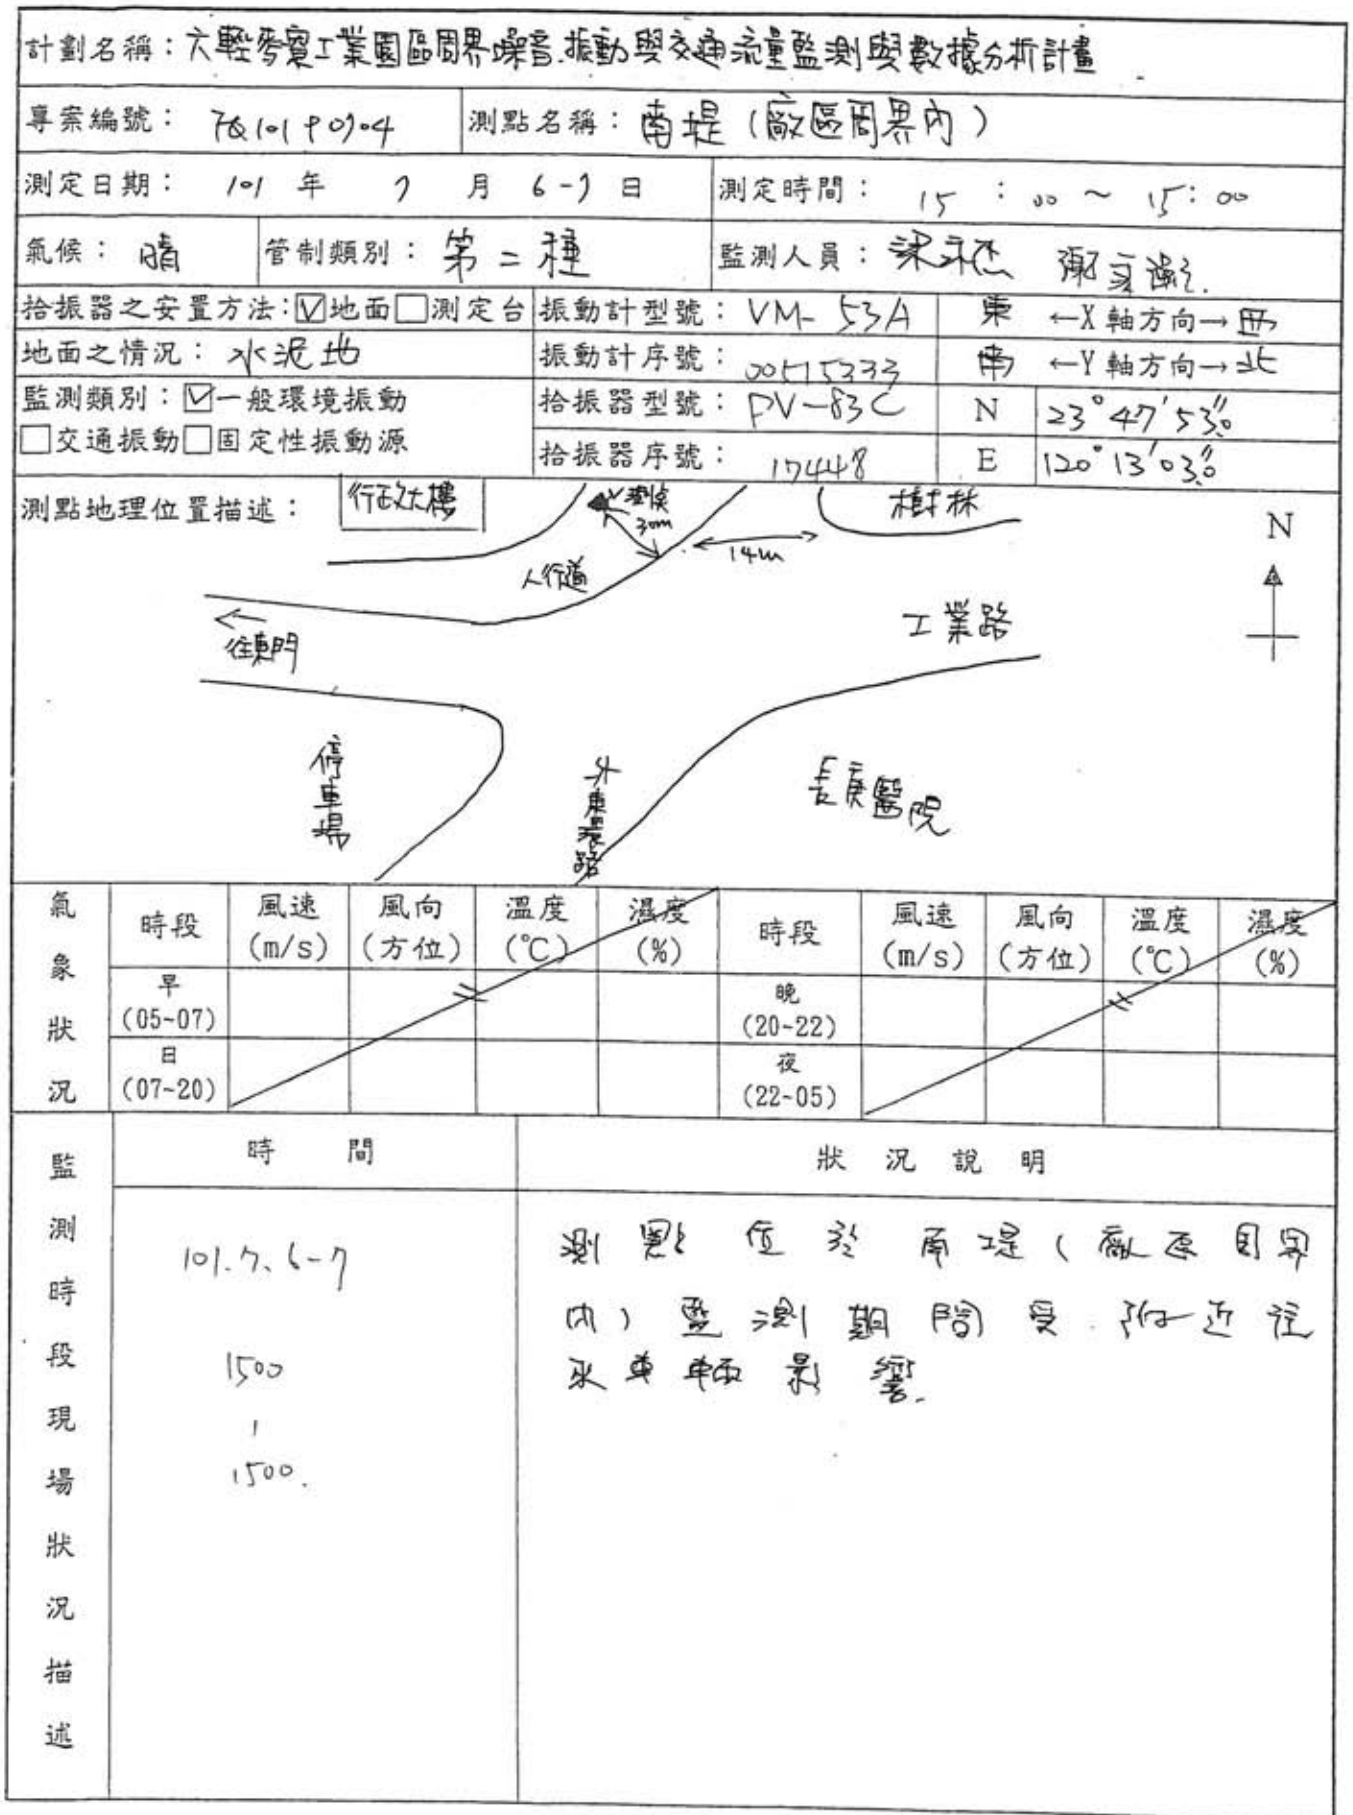 計劃名稱：六輕麥寮工業園區周界噪音.振動與交通流量監測與數據分析計畫
專案編號： 測點名稱：南堤（廠區周界內）
測定日期： 101 年 7 月 6-7 日 測定時間： 15 : 00 ~ 15: 00
氣候：晴 管制類別：第二種 監測人員：
拾振器之安置方法：☑地面□測定台 振動計型號：VM-53A 東 ←X 軸方向→西
地面之情況：水泥地 振動計序號：00515333 南 ←Y 軸方向→北
監測類別：☑一般環境振動 拾振器型號：PV-83C N 23°47'53.0"
□交通振動□固定性振動源 拾振器序號：17448 E 120°13'03.0"
測點地理位置描述： 行政大樓 測點 30m 樹林 N
14m
人行道
工業路
往東門
停車場
外東環路
長庚醫院
氣象狀況 時段 風速(m/s) 風向(方位) 溫度(°C) 濕度(%) 時段 風速(m/s) 風向(方位) 溫度(°C) 濕度(%)
早(05~07) 晚(20~22)
日(07~20) 夜(22~05)
監測時段現場狀況描述 時 間 狀 況 說 明
101.7.6-7 測點位於南堤（廠區周界
內）監測期間受附近往
1500 來車輛影響.
|
1500.